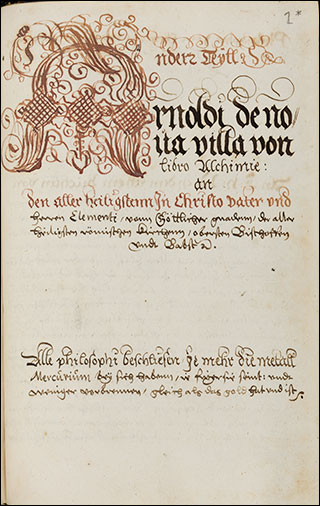 1*
Ander Theyll
Arnoldi de no/
ua villa von
libro Alchimie:
an
den aller heiligisten In Christo vater vnd
herren Clementi, vom Göttlicher gnaden, der aller
heiligisten römischen Kirchenn, obersten Bischoffen
vnd Babst
Alle philosophi beschliessen Je mehr die metall
Mercurium, bey sich habenn, ie feüger sie seint: vnd
weniger verbrennen, gleich als das gold thut vnd ist.